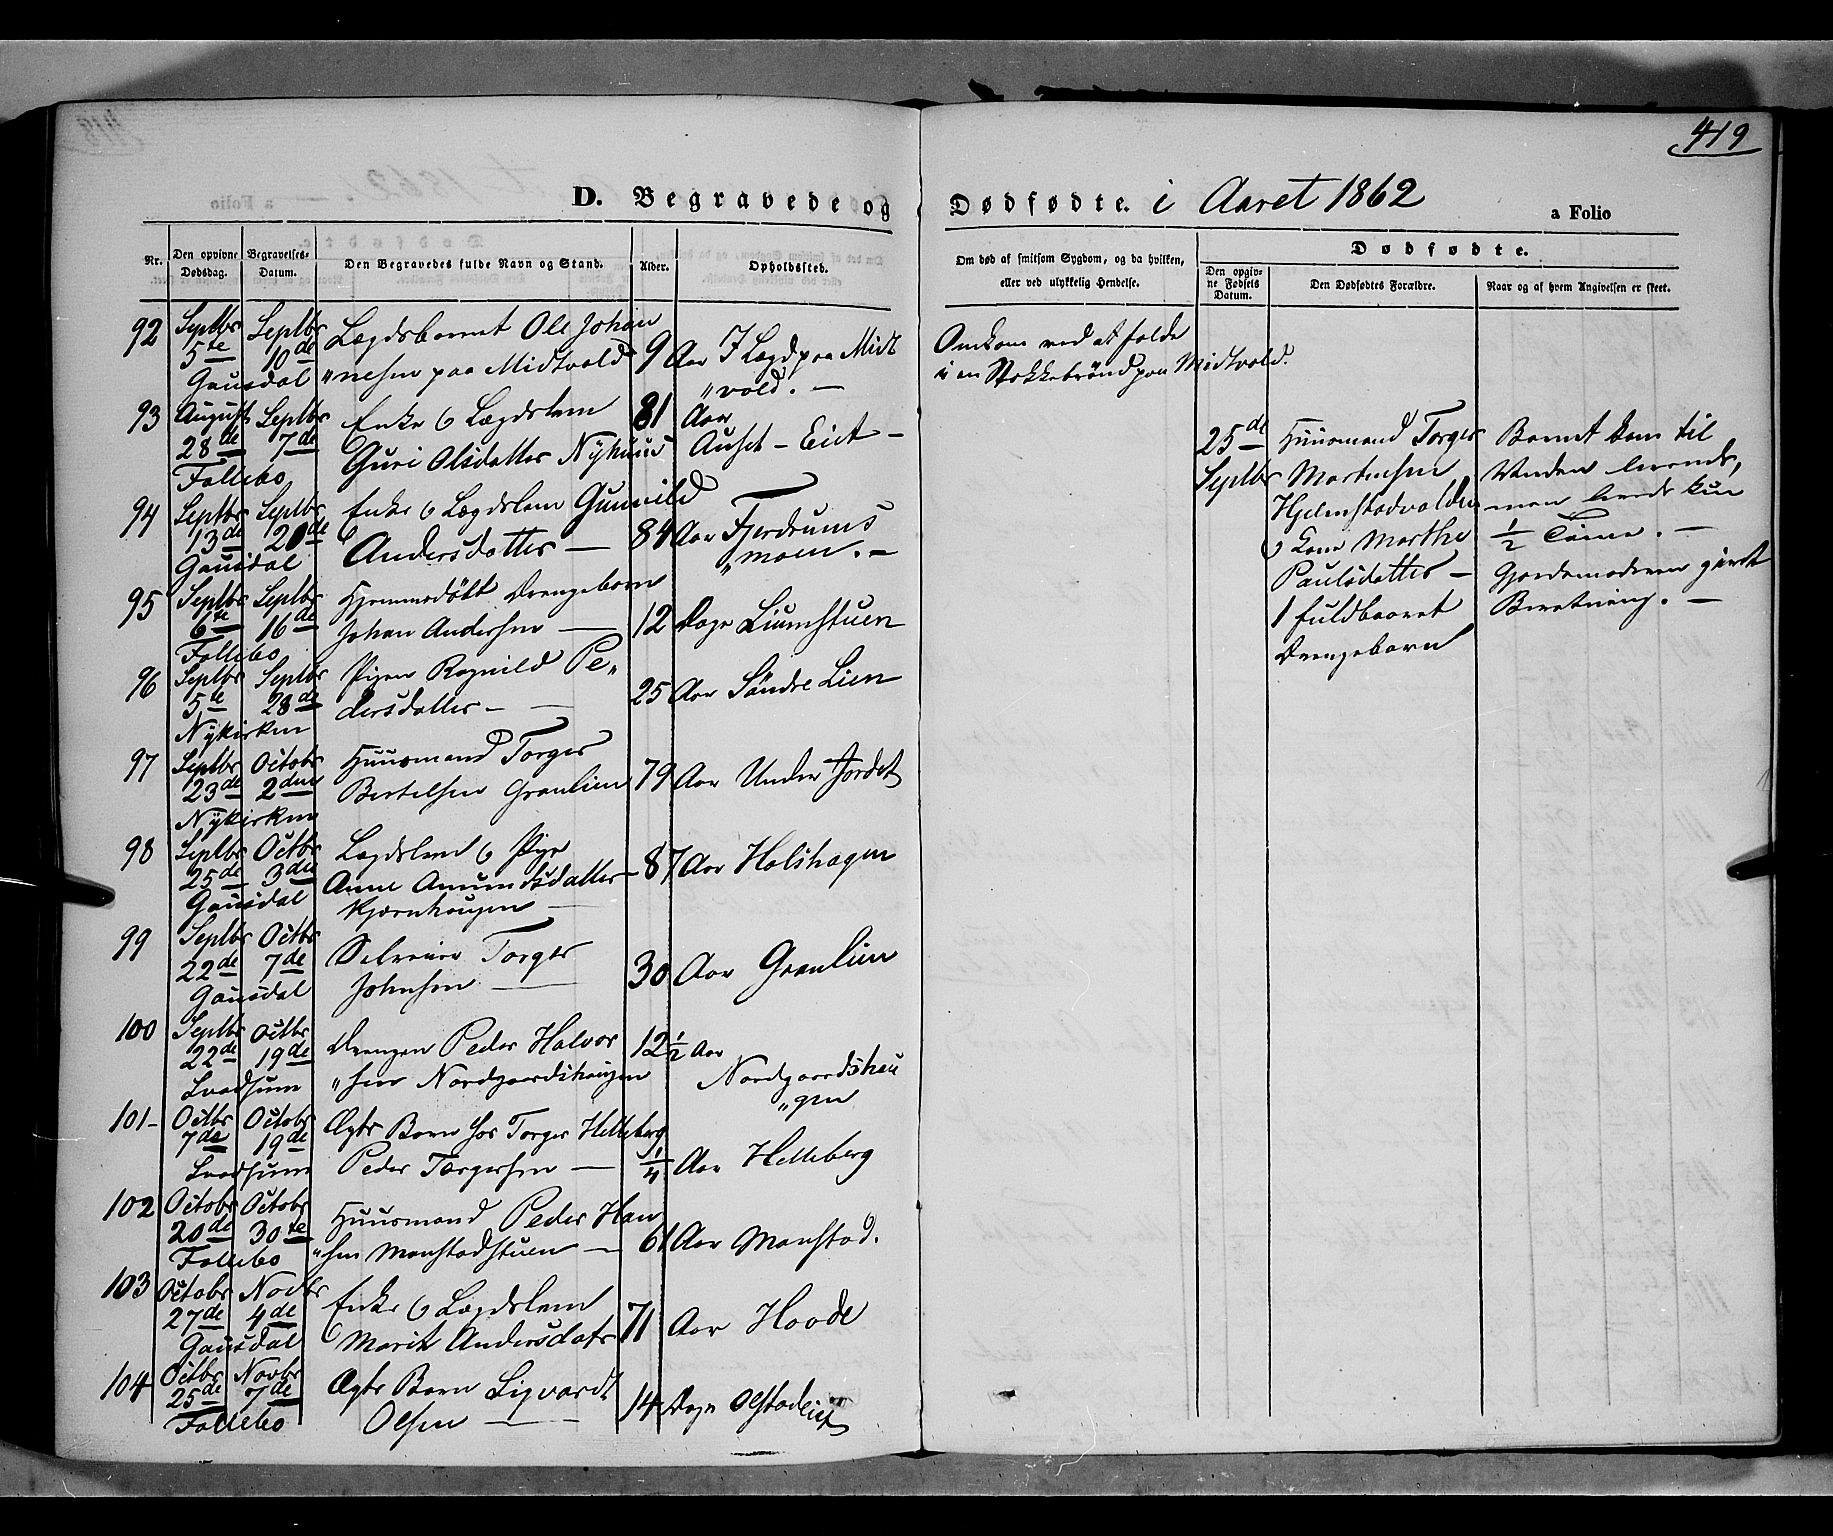 419
D. Begravede og Dødfødte. i Aaret 1862
a Folio
Nr.
Den opgivne Dødsdag.
Begravelses-Datum.
Den Begravedes fulde Navn og Stand.
Alder.
Opholdssted.
Om død af smitsom Sygdom, og da hvilken,
eller ved ulykkelig Hendelse.
Dødfødte.
Den opgiv-
ne Fødsels
Datum.
Den Dødfødtes Forældre.
Naar og af hvem Angivelsen er skeet.
92 Septbr Septbr Lægdsbarnet Ole Johan
5te 10de "nesen paa Midtvold 9 Aar I Lægd paa Midt
Gausdal "vold. —
Omkom ved at falde
i en Stokkebrönd paa Midtvold.
93 August Septbr Enke o Lægdslem 81 Aar
28de 7de Guri Olsdatter Nyhuus Auset-Eiet —
Follebo
94 Septbr Septbr Enke o Lægdslem Gunild
13de 20de Andersdatter — 84 Aar Fjerdrums
Gausdal "moen. —
95 Septbr Septbr Hjemmedöbt Drengebarn
6te 16de Johan Andersen — 12 Dage Liumstuen
Follebo
96 Septbr Septbr Pigen Ragnild Pe"
5te 28de dersdatter — 25 Aar Söndre Lien
Nykirken
97 Septbr Octobr Huusmand Torger
23de 2den Bertelsen Granlien 79 Aar Under Jordet
Nykirken
98 Septbr Octbr Lægdslem o Pige
25de 3den Anne Amundsdatter — 87 Aar Holshagen
Gausdal Kjærnhaugen —
99 Septbr Octbr Torger
22de 7de Johnsen — 30 Aar Granlien
Gausdal
100 Septbr Octbr Drengen Peder Halvor 12½ Aar
22de 19de "sen Nordgaardshaugen Nordgaardshau
Svadsum "gen
101 — Octbr Octobr Ægte Barn hos Torger Helleberg
7de 19de Peder Torgersen — ¼ Aar Helleberg
Svadsum
102 Octobr Octobr Huusmand Peder Han
20de 30te "sen Monstadstuen — 61 Aar Monstad.
Follebo
103 Octobr Novbr Enke o Lægdslem
27de 4de Marit Andersdatr 71 Aar Hovde
Gausdal
104 Octbr Novbr Ægte Barn Sigvardt
25de 7de Olsen — 14 Dage Olstadeiet
Follebo
25de Huusmand Torger Barnet kom til
Septbr Martensen Verden levende,
Hjelmstadvolden men levede kun
o Kone Marthe ½ Time. —
Paulsdatter — Gjordemoderen gjort
1 fuldbaaret Beretning. —
Drengebarn